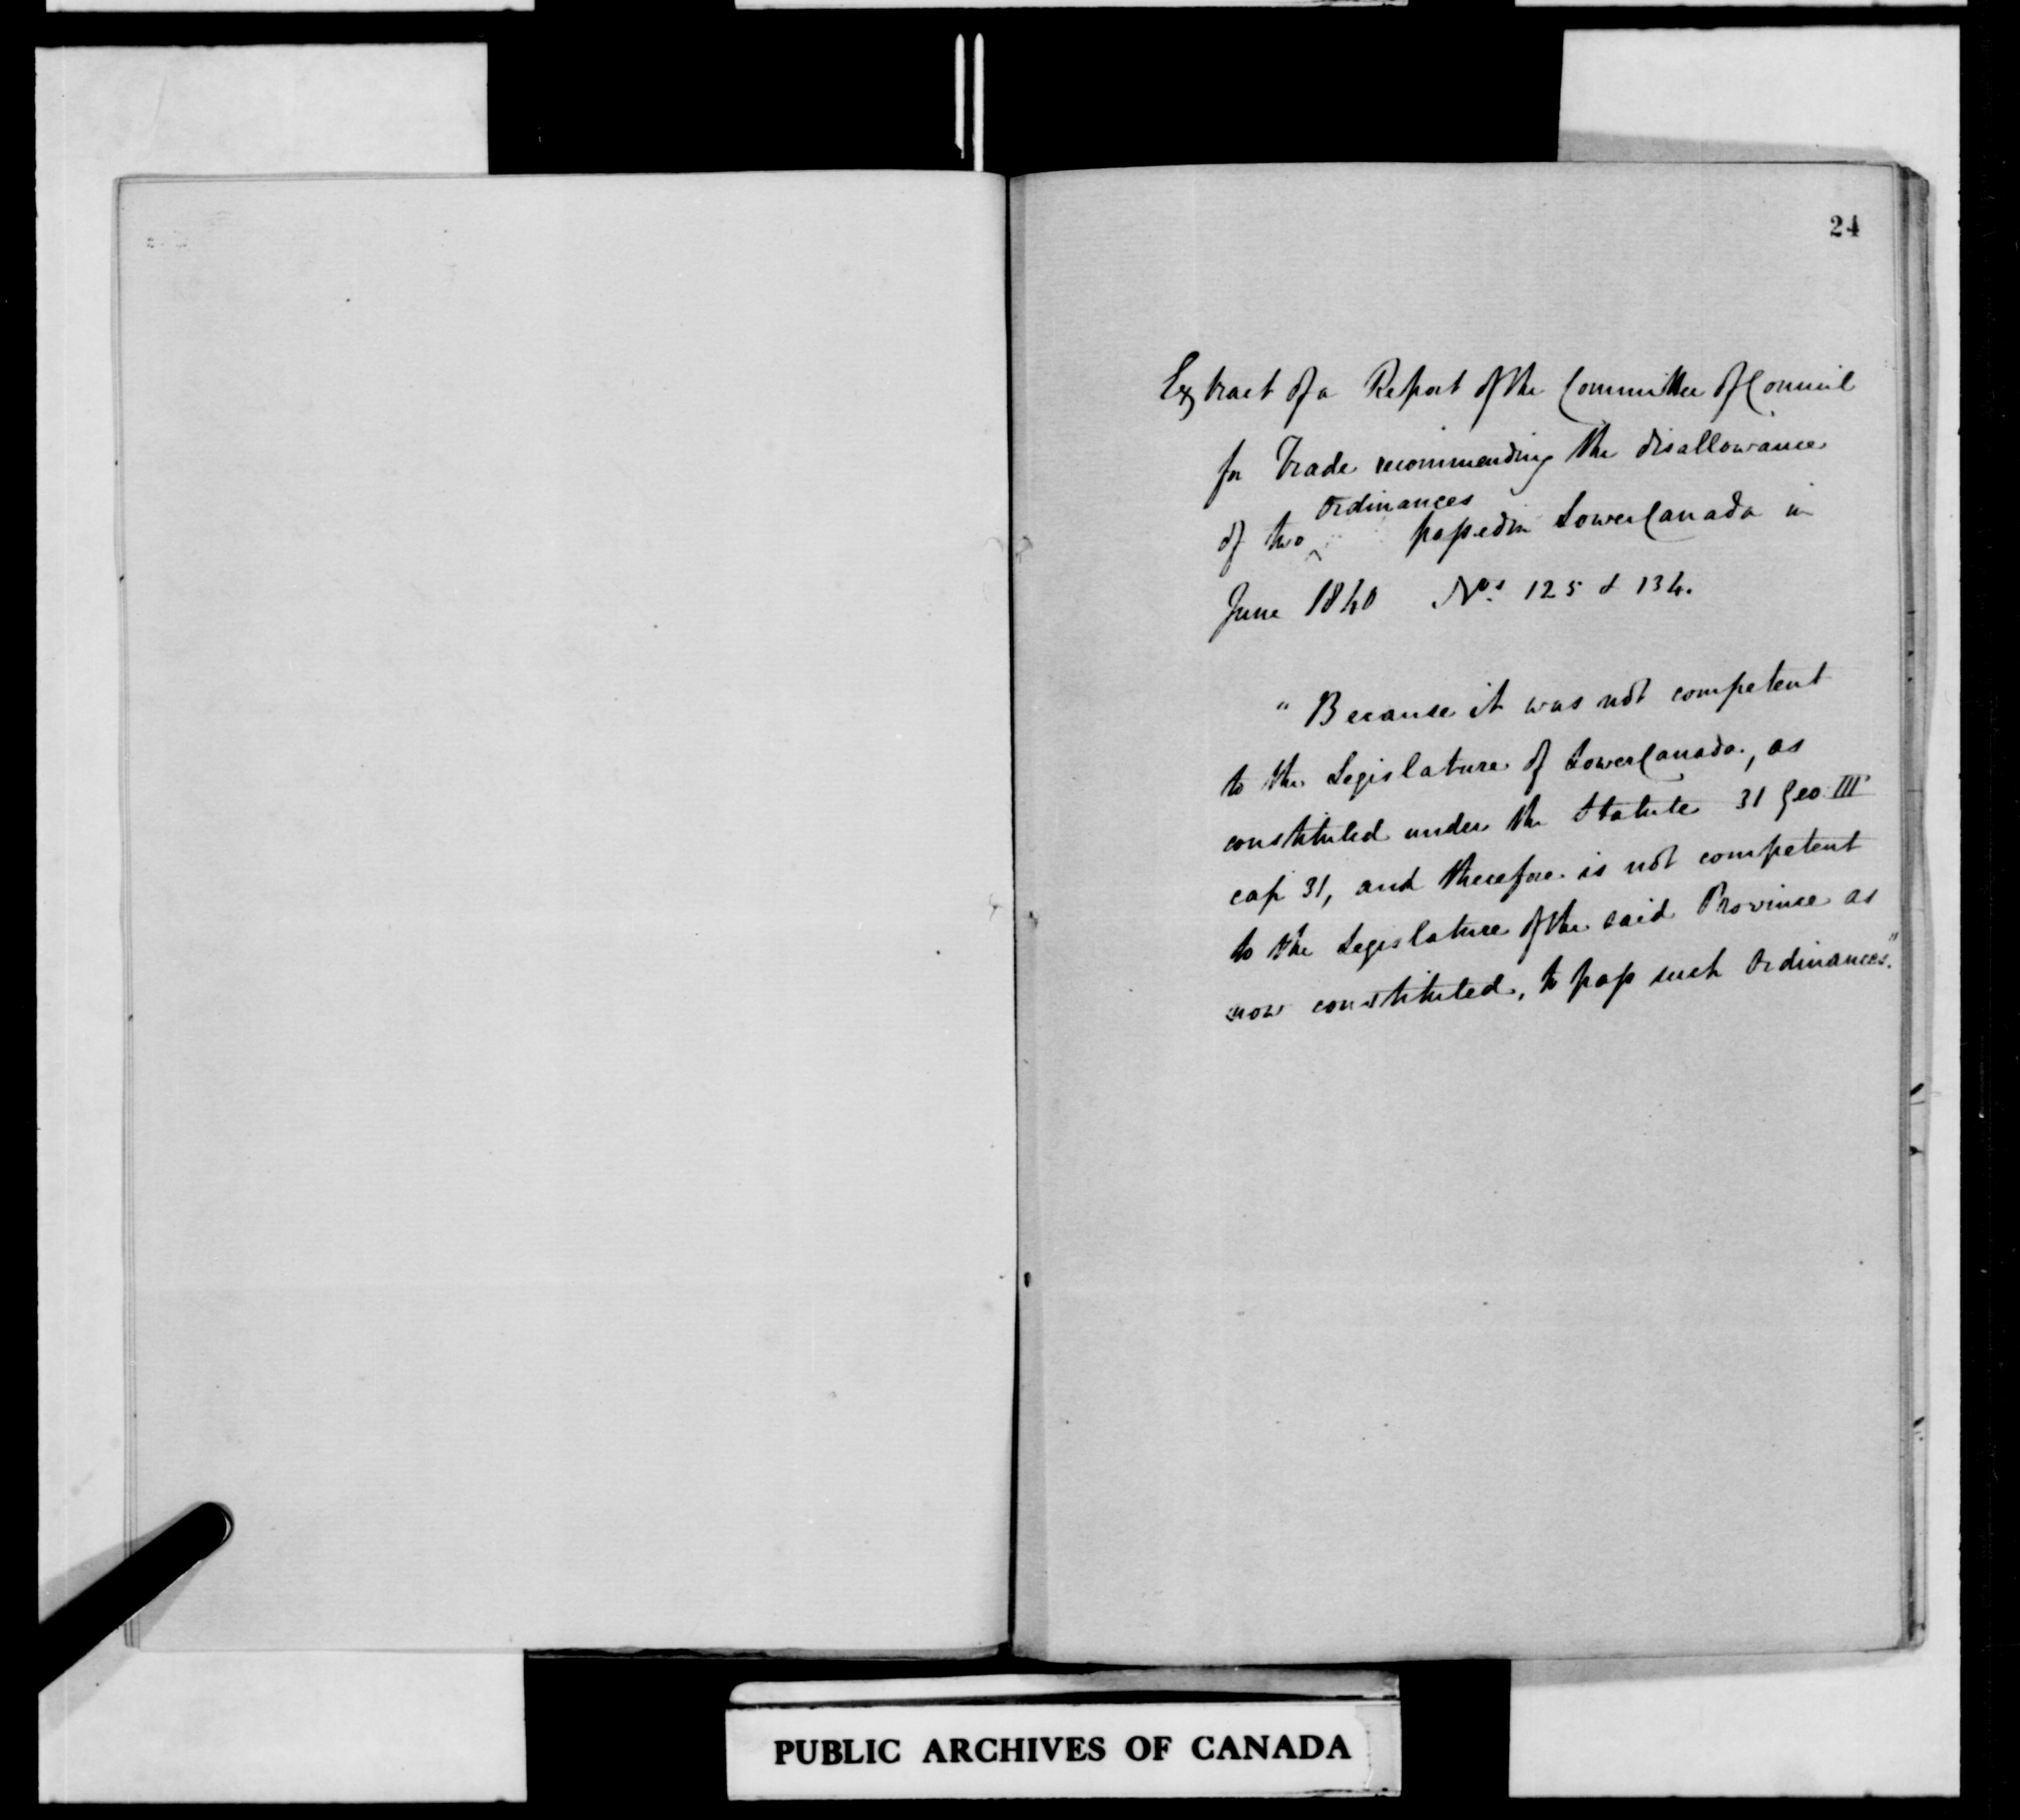 24
Extract of a Report of the Committee of Council
for Trade recommending the disallowance
Ordinances
of two ^ passed in Lower Canada in
June 1840 Nos. 125 & 134.
"Because it was not competent
to the Legislature of Lower Canada, as
constituted under the Statute 31 Geo III
cap 31, and therefore is not competent
to the Legislature of the said Province as
now constituted, to pass such Ordinances."
PUBLIC ARCHIVES OF CANADA